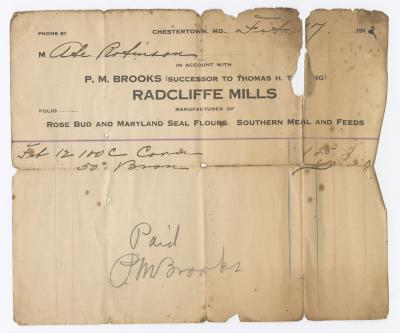 PHONE 81 CHESTERTOWN, MD., Feb 17 191
M Abe Robinson
IN ACCOUNT WITH
P. M. BROOKS (SUCCESSOR TO THOMAS H. T NG)
RADCLIFFE MILLS
FOLIO MANUFACTURER OF
ROSE BUD AND MARYLAND SEAL FLOURS. SOUTHERN MEAL AND FEEDS
Feb 12 100 C Corn 1 85
50# Bran
Paid
P.M Brooks